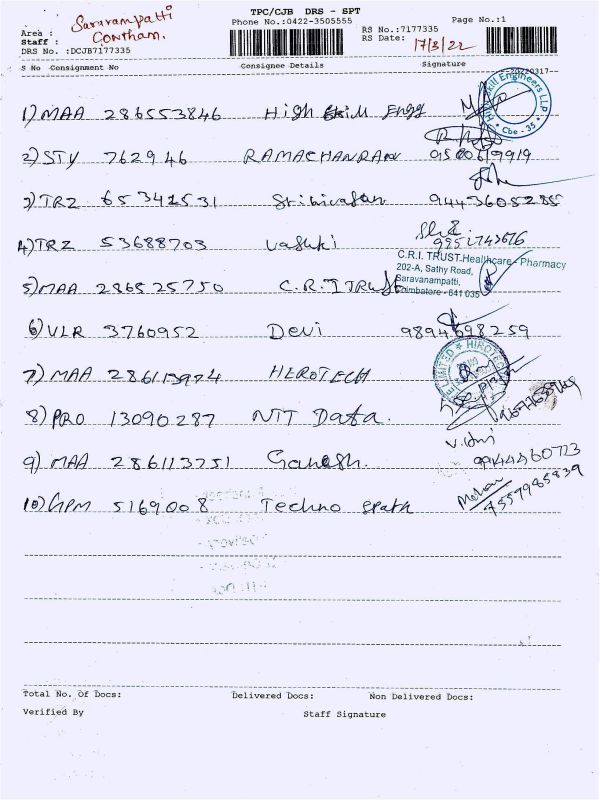 TPC/CJB DRS - SPT
Phone No.:0422-3505555
Page No.:1
Area : Saravampatti
Staff : Gowtham.
DRS No. :DCJB7177335
RS No.:7177335
RS Date: 17/3/22
S No Consignment No Consignee Details Signature
1) MAA 286553846 High Skill Engg
Skill Engineers LLP
Cbe - 35
2) STY 762946 RAMACHANRAN
3) TRZ 65342531 Srinivasan 9443605285
4) TRZ 53688703 Vasuki
C.R.I. TRUST Healthcare - Pharmacy
202-A, Sathy Road,
Saravanampatti,
Coimbatore - 641 035
5) MAA 286525750 C.R.I Trust
6) VLR 3760952 Devi 9894698259
LIMITED * HIROTEC
7) MAA HIROTECH
8) PRO 13090287 NTT Data.
9) MAA 286113751 Ganesh.
10) GPM 5169008 Techno spark
Mohan 7557985839
Total No. Of Docs: Delivered Docs: Non Delivered Docs:
Verified By Staff Signature